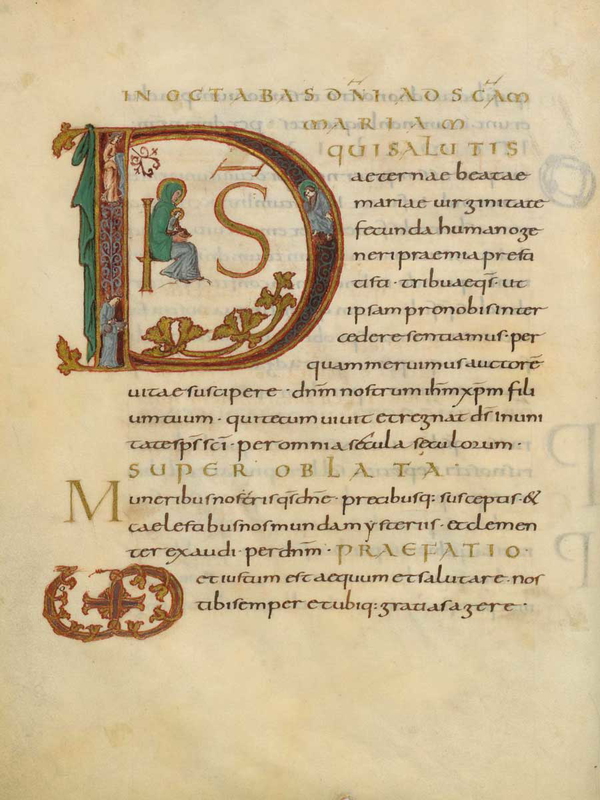 IN OCTABAS DN̄I AD SC̄AM
MARIAM
DS̄ QUI SALUTIS
aeternae beatae
mariae uirginitate
fecunda humano ge
neri praemia presti
tisti · tribue q̄s · ut
ipsam pro nobis inter
cedere sentiamus · per
quam meruimus auctorē
uitae suscipere · dnm̄ nostrum ihm̄ xp̄m fili
um tuum · qui tecum uiuit et regnat ds̄ in uni
tate sp̄s sc̄i · per omnia sēcula sēculorum ·
SUPER OBLATA ·
Muneribus nostris q̄s dn̄e · precibusq: susceptis · &
caelestibus nos munda mysteriis · et clemen
ter exaudi · per dnm̄ · PRAEFATIO ·
et iustum est aequum et salutare · nos
tibi semper et ubiq: gratias agere ·